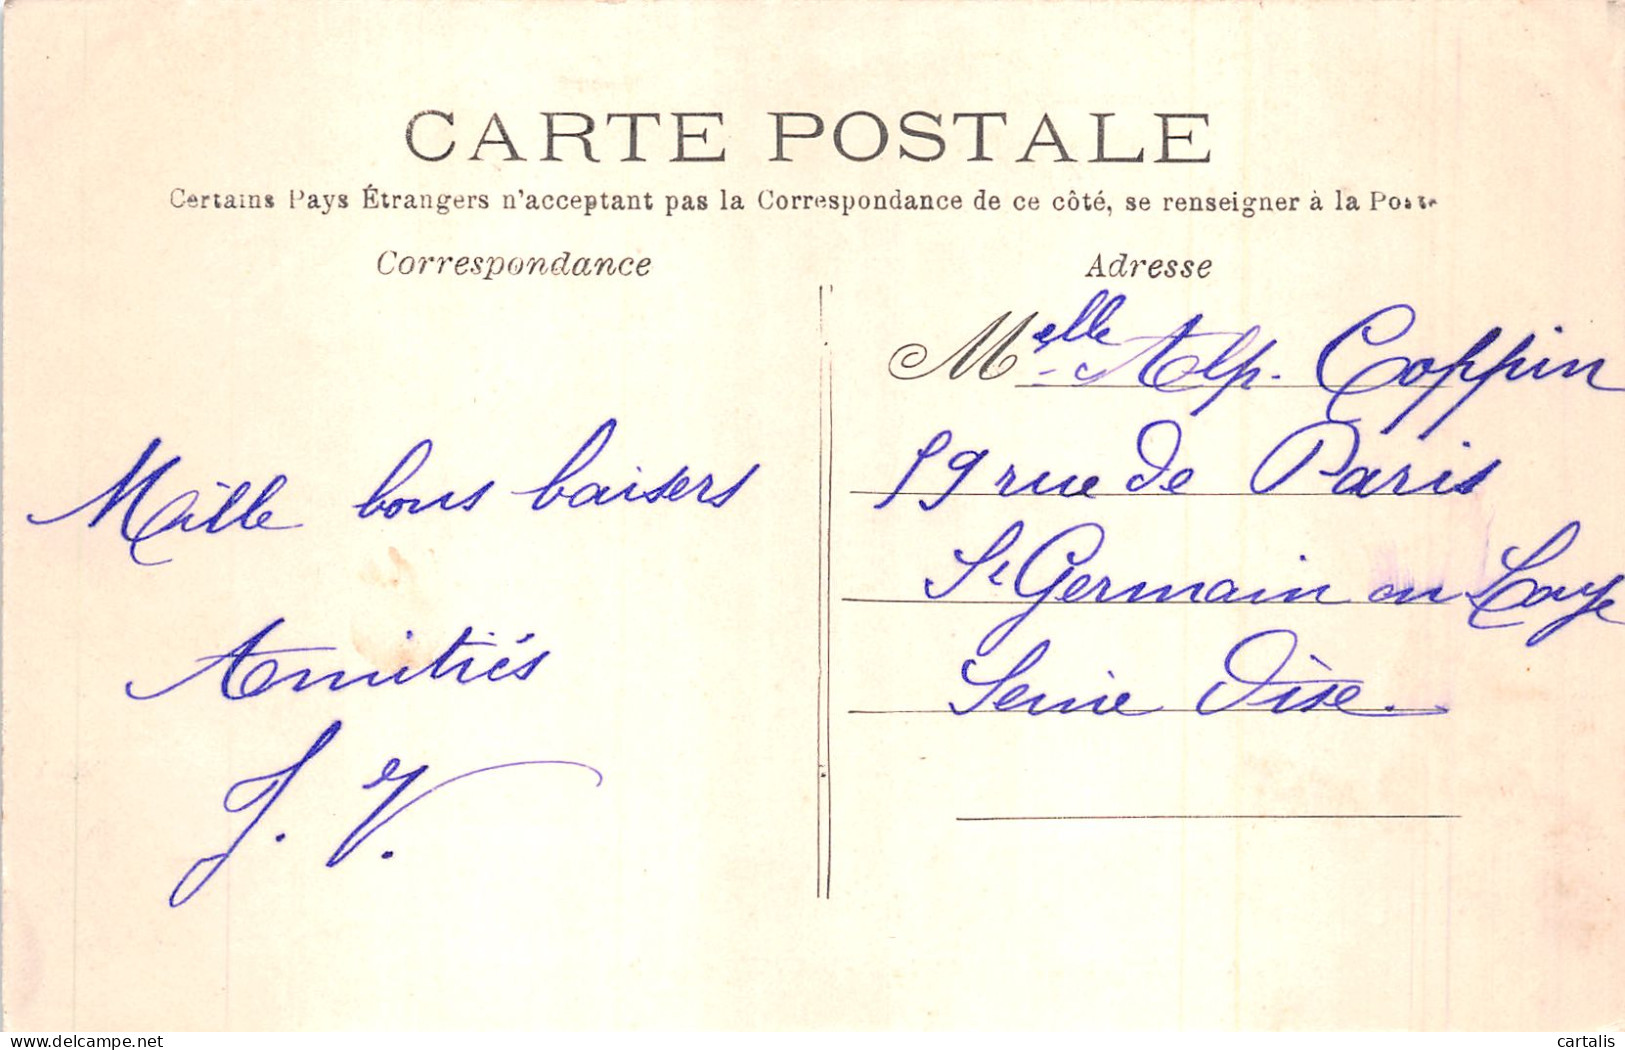 CARTE POSTALE
Certains Pays Étrangers n'acceptant pas la Correspondance de ce côté, se renseigner à la Poste
Correspondance
Mille bons baisers
Amitiés
J. V.
Adresse
Melle Alp. Coppin
59 rue de Paris
St Germain en Laye
Seine Oise.
delcampe.net
cartalis